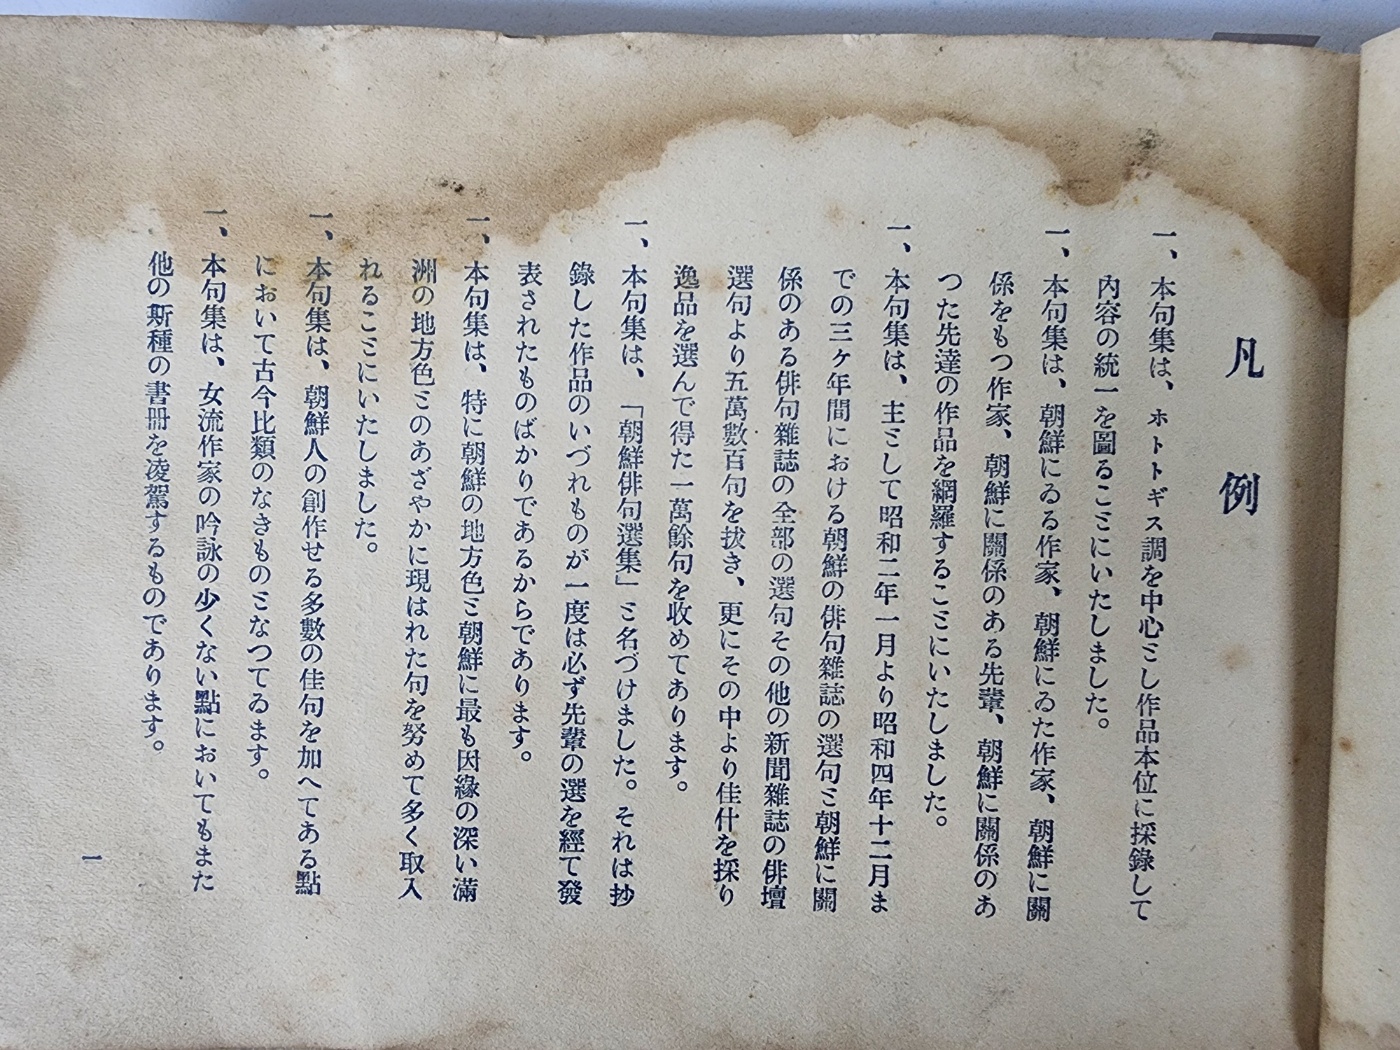 凡例
一、本句集は、ホトトギス調を中心ミし作品本位に採錄して
內容の統一を圖るこミにいたしました。
一、本句集は、朝鮮にゐる作家、朝鮮にゐた作家、朝鮮に關
係をもつ作家、朝鮮に關係のある先輩、朝鮮に關係のあ
つた先達の作品を網羅するこミにいたしました。
一、本句集は、主ミして昭和二年一月より昭和四年十二月ま
での三ケ年間における朝鮮の俳句雜誌の選句ミ朝鮮に關
係のある俳句雜誌の全部の選句その他の新聞雜誌の俳壇
選句より五萬數百句を拔き、更にその中より佳什を採り
逸品を選んで得た一萬餘句を收めてあります。
一、本句集は、「朝鮮俳句選集」ミ名づけました。それは抄
錄した作品のいづれものが一度は必ず先輩の選を經て發
表されたものばかりであるからであります。
一、本句集は、特に朝鮮の地方色ミ朝鮮に最も因緣の深い滿
洲の地方色ミのあざやかに現はれた句を努めて多く取入
れるこミにいたしました。
一、本句集は、朝鮮人の創作せる多數の佳句を加へてある點
において古今比類のなきものミなつてゐます。
一、本句集は、女流作家の吟詠の少くない點においてもまた
他の斯種の書冊を凌駕するものであります。
一